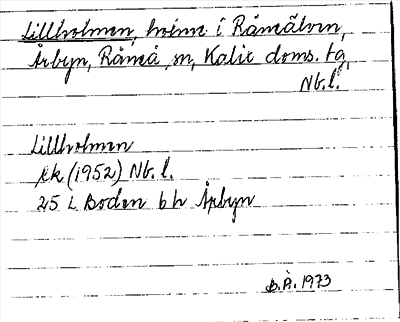 Lillholmen, holme i Råneälven,
Årbyn, Råneå sn, Kalix doms. tg,
Nb. l.
Lillholmen
ek (1952) Nb. l.
25 L Boden b h Årbyn
B.Å. 1973